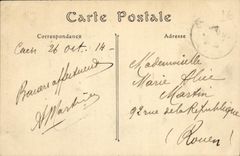 Carte Postale
Correspondance
Adresse
Caen 26 Oct. 14 -
Martin
Mademoiselle
Marie
Martin
92 rue de la République
(Rouen)